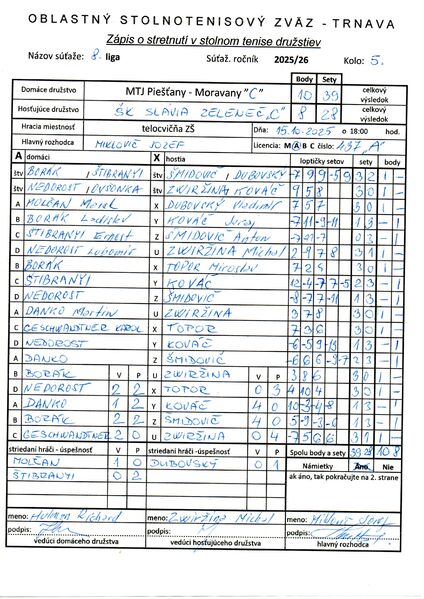 OBLASTNÝ STOLNOTENISOVÝ ZVÄZ - TRNAVA
Zápis o stretnutí v stolnom tenise družstiev
Názov súťaže: 8. liga Súťaž. ročník 2025/26 Kolo: 5.
Body Sety
Domáce družstvo MTJ Piešťany - Moravany "C" 10 39 celkový výsledok
Hosťujúce družstvo ŠK SLÁVIA ZELENEČ "C" 8 28 celkový výsledok
Hracia miestnosť telocvičňa ZŠ Dňa: 15.10.2025 o 18:00 hod.
Hlavný rozhodca MIKLOVIČ JOZEF Licencia: M A B C číslo: 437, A
A domáci X hostia loptičky setov sety body
štv BORÁK, ŠTIBRANYI štv ŠMIDOVIČ, DUBOVSKÝ
štv NEDOROST, DUŠONKA štv ZWIRŽINA, KOVÁČ 9 5 8 3 0 1 -
A MOLČAN Marek X DUBOVSKÝ Vladimír 7 5 7 3 0 1 -
B BORÁK Ladislav Y KOVÁČ Juraj 1 3 - 1
C ŠTIBRANYI Ernest Z ŠMIDOVIČ Anton
D NEDOROST Ľubomír U ZWIRŽINA Michal 3 1 1 -
B BORÁK X TOPOR Miroslav 3 0 1 -
C ŠTIBRANYI Y KOVÁČ 2 3 - 1
D NEDOROST Z ŠMIDOVIČ 1 3 - 1
A DANKO Martin U ZWIRŽINA 3 7 8 3 0 1 -
C GESCHWANDTNER KAROL X TOPOR 7 3 6 3 0 1 -
D NEDOROST Y KOVÁČ -6 -5 9 -13 1 3 - 1
A DANKO Z ŠMIDOVIČ 2 3 - 1
B BORÁK V P U ZWIRŽINA V P 3 8 6 3 0 1 -
D NEDOROST 2 2 X TOPOR 0 3 4 10 4 3 0 1 -
A DANKO 1 2 Y KOVÁČ 4 0 1 3 - 1
B BORÁK 2 2 Z ŠMIDOVIČ 4 0 1 3 - 1
C GESCHWANDTNER 2 0 U ZWIRŽINA 0 4 -7 5 6 6 3 1 1 -
striedaní hráči - úspešnosť V P striedaní hráči - úspešnosť V P Spolu body a sety 39 28 10 8
MOLČAN 1 0 DUBOVSKÝ 0 1 Námietky Áno Nie
ŠTIBRANYI 0 2 ak áno, tak pokračujte na 2. strane
meno: Richard meno: Zwiržina Michal meno:
podpis: podpis: podpis:
vedúci domáceho družstva vedúci hosťujúceho družstva hlavný rozhodca